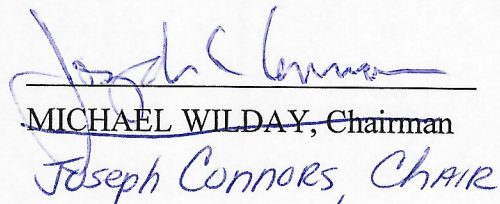 Joseph C Connors
MICHAEL WILDAY, Chairman
Joseph Connors, Chair